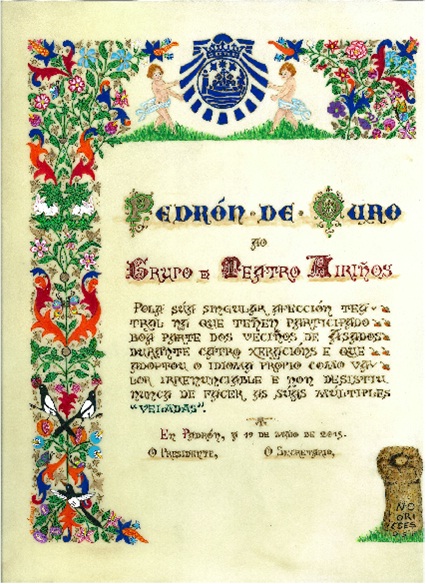 PEDRÓN · DE · OURO
AO
GRUPO DE TEATRO AIRIÑOS
POLA SÚA SINGULAR AFECCIÓN TEA-
TRAL NA QUE TEÑEN PARTICIPADO
BOA PARTE DOS VECIÑOS DE ASADOS
DURANTE CATRO XERACIÓNS E QUE
ADOPTOU O IDIOMA PROPIO COMO VA-
LOR IRRENUNCIABLE E NON DESISTIU
NUNCA DE FACER AS SUAS MÚLTIPLES
"VELADAS".
EN PADRÓN, A 19 DE MAIO DE 2013.
O PRESIDENTE, O SECRETARIO,
NO
ORI
ESES